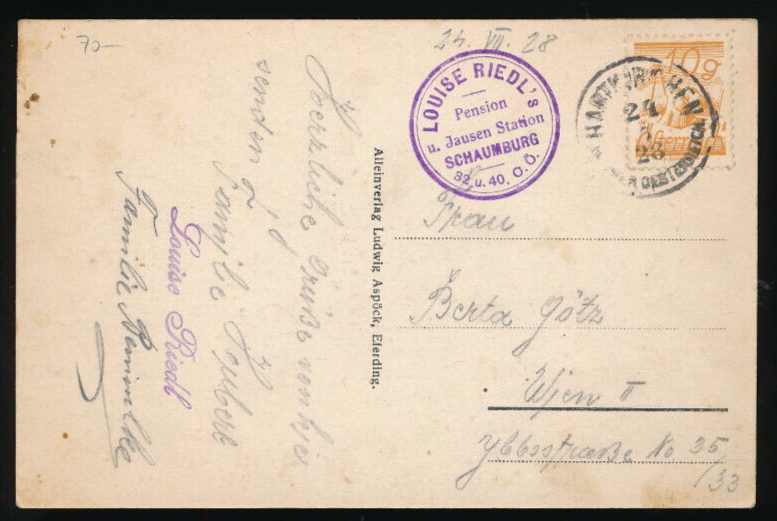 70-
24. VII. 28
LOUISE RIEDL's
Pension
u. Jausen Station
SCHAUMBURG
32 u. 40, O.Ö.
10g
HARTKIRCHEN
24
28
OBER OESTERREICH
Frau
Berta Götz
Wien II
Ybbsstraße No 35
/33
Alleinverlag Ludwig Aspöck, Eferding.
Herzliche Grüße von hier
senden
Familie Hubert
Louise Riedl
Familie